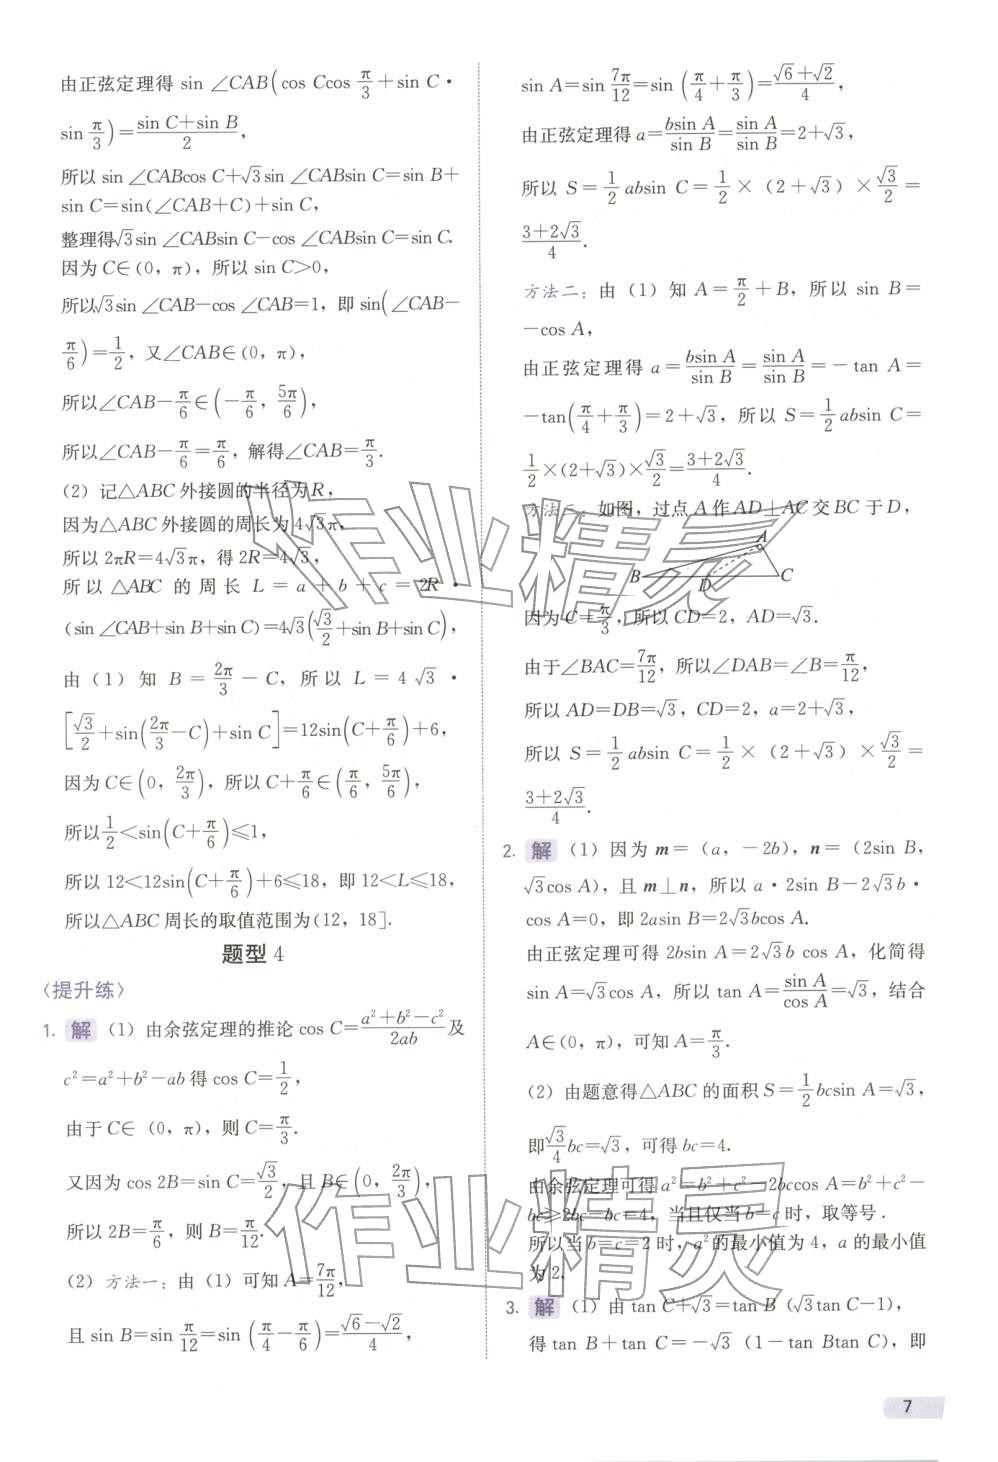 由正弦定理得 sin ∠CAB(cos Ccos π/3 + sin C·
sin π/3) = (sin C+sin B)/2,
所以 sin ∠CABcos C+√3sin ∠CABsin C=sin B+
sin C=sin(∠CAB+C)+sin C,
整理得√3sin ∠CABsin C−cos ∠CABsin C=sin C.
因为 C∈(0, π), 所以 sin C>0,
所以√3sin ∠CAB−cos ∠CAB=1, 即 sin(∠CAB−
π/6)=1/2, 又∠CAB∈(0, π),
所以∠CAB−π/6∈(−π/6, 5π/6),
所以∠CAB−π/6=π/6, 解得∠CAB=π/3.
(2) 记△ABC 外接圆的半径为 R,
因为△ABC 外接圆的周长为 4√3π,
所以 2πR=4√3π, 得 2R=4√3,
所以 △ABC 的周长 L = a + b + c = 2R ·
(sin ∠CAB+sin B+sin C)=4√3(√3/2+sin B+sin C),
由(1)知 B = 2π/3 − C, 所以 L = 4 √3 ·
[√3/2+sin(2π/3−C)+sin C]=12sin(C+π/6)+6,
因为 C∈(0, 2π/3), 所以 C+π/6∈(π/6, 5π/6),
所以1/2<sin(C+π/6)≤1,
所以 12<12sin(C+π/6)+6≤18, 即 12<L≤18,
所以△ABC 周长的取值范围为(12, 18].
题型 4
〈提升练〉
1. 解 (1) 由余弦定理的推论 cos C=(a²+b²−c²)/2ab 及
c²=a²+b²−ab 得 cos C=1/2,
由于 C∈ (0, π), 则 C=π/3.
又因为 cos 2B=sin C=√3/2, 且 B∈(0, 2π/3),
所以 2B=π/6, 则 B=π/12.
(2) 方法一: 由(1)可知 A=7π/12,
且 sin B=sin π/12=sin (π/4−π/6)=(√6−√2)/4,
sin A=sin 7π/12=sin (π/4+π/3)=(√6+√2)/4,
由正弦定理得 a=bsin A/sin B=sin A/sin B=2+√3,
所以 S=1/2 absin C=1/2 × (2+√3) × √3/2 =
(3+2√3)/4.
方法二: 由(1)知 A=π/2+B, 所以 sin B=
−cos A,
由正弦定理得 a=bsin A/sin B=sin A/sin B=−tan A=
−tan(π/4+π/3)=2+√3, 所以 S=1/2 absin C=
1/2×(2+√3)×√3/2=(3+2√3)/4.
方法三: 如图, 过点 A 作 AD⊥AC 交 BC 于 D,
A
B D C
因为 C=π/3, 所以 CD=2, AD=√3.
由于∠BAC=7π/12, 所以∠DAB=∠B=π/12,
所以 AD=DB=√3, CD=2, a=2+√3,
所以 S=1/2 absin C=1/2 × (2+√3) × √3/2 =
(3+2√3)/4.
2. 解 (1) 因为 m=(a, −2b), n=(2sin B,
√3cos A), 且 m⊥n, 所以 a·2sin B−2√3b·
cos A=0, 即 2asin B=2√3bcos A.
由正弦定理可得 2bsin A=2√3b cos A, 化简得
sin A=√3cos A, 所以 tan A=sin A/cos A=√3, 结合
A∈(0, π), 可知 A=π/3.
(2) 由题意得△ABC 的面积 S=1/2 bcsin A=√3,
即√3/4 bc=√3, 可得 bc=4.
由余弦定理可得 a²=b²+c²−2bccos A=b²+c²−
bc≥2bc−bc=4, 当且仅当 b=c 时, 取等号.
所以当 b=c=2 时, a²的最小值为 4, a 的最小值
为 2.
3. 解 (1) 由 tan C+√3=tan B (√3tan C−1),
得 tan B+tan C=−√3 (1−tan Btan C), 即
7
作业精灵
作业精灵